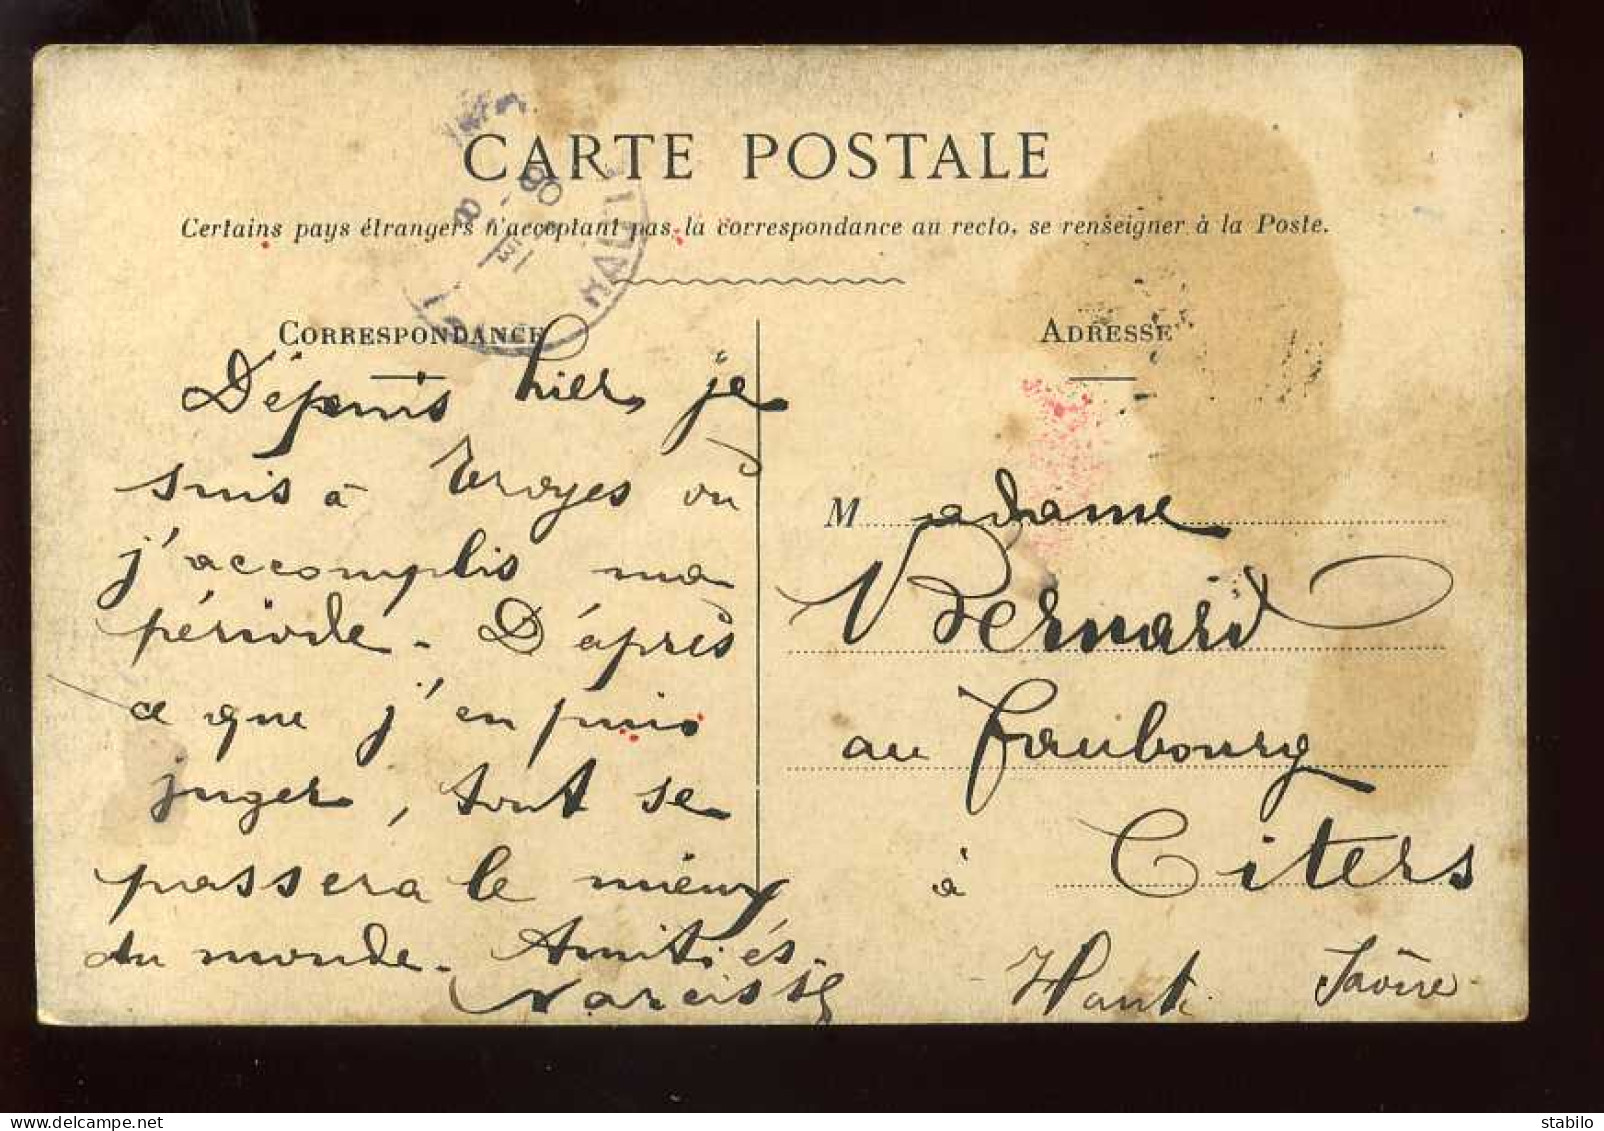 CARTE POSTALE
Certains pays étrangers n'acceptant pas la correspondance au recto, se renseigner à la Poste.
CORRESPONDANCE
Dépuis hier, je
suis à Troyes où
j'accomplis ma
période. D'après
ce que j'en puis
juger, tout se
passera le mieux
du monde. Amitiés.
Narcisse
ADRESSE
Madame
Bernard
au Faubourg
à Citers
Haute Saône
delcampe.net
stabilo